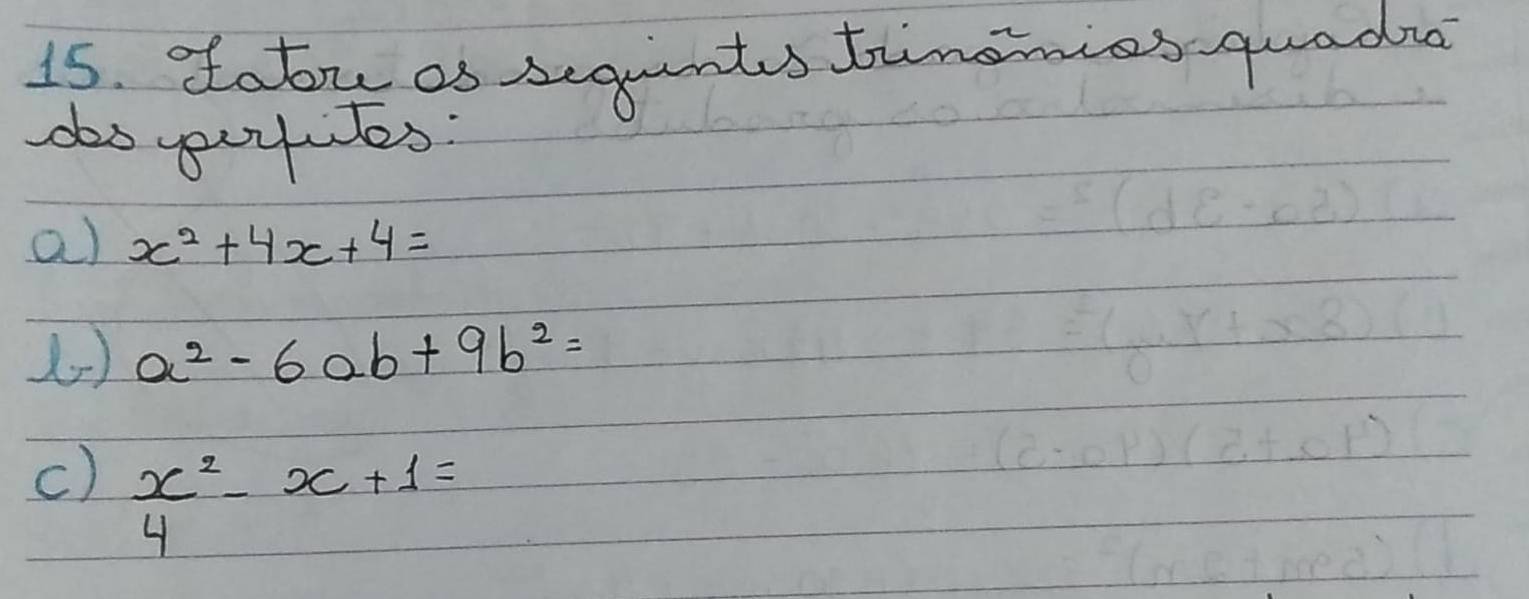 15. Fatore os seguintes trinômios quadra
dos perfeitos:
a) x² + 4x + 4 =
b) a² - 6ab + 9b² =
c) x² - x + 1 =
4